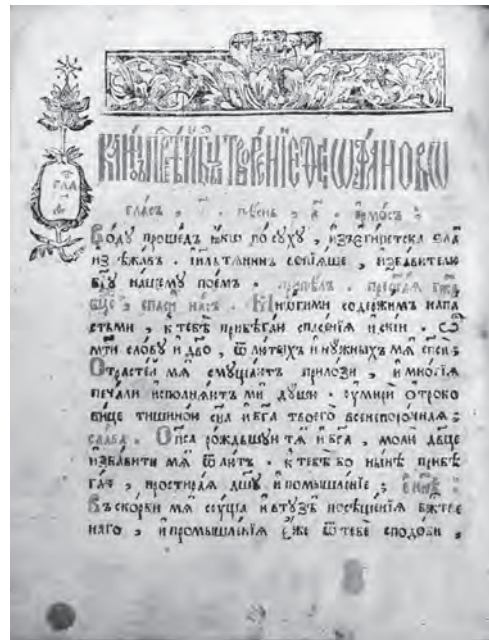 КАНО́НЪ ПРТ҃Ѣ́Й БЦ҃Ы ТВОРЕ́НЇЕ ѲЕѠФА́НОВѠ
ГЛА
гласъ , и҃ . пѣснь , а҃ . і҆рмосъ :
Во́ду прошедъ ꙗ҆́кѡ по́ суху , и҆зъегипетска ѕла
из бѣжавъ . і҆и҃льтѧнинъ вопїѧше , и҆збавителю
бг҃у нашему поемъ . припѣлъ . прест҃ая бг҃ѡ
дц҃е , спаси насъ . Многими содержимъ напа
стьми , к тебѣ прибѣгаю спасенїѧ искїи . Ѽ
мт҃и слову и҆ дв҃о , ѿ лютыхъ и҆ нужныхъ мѧ спаси :
Страстей мѧ смущаютъ прилози , и҆ многїѧ
печали и҆сполнѧютъ ми души . ѹмири ѻ҆троко
вице тишиною сн҃а и҆ бг҃а твоего всенепорочная :
слава . Сп҃са рождьшую тѧ и҆ бг҃а , молю дв҃це
и҆збавити мѧ ѿ лютъ . к тебѣ бо нынѣ прибѣ
гаю , простираѧ дш҃у и҆ помышленїе : и҆ нн҃ѣ
Въ скорби мѧ сѹща и҆ посѣщенїѧ бж҃тве
наго , и҆ промышленїѧ є҆́же ѿ тебе сподоби ,